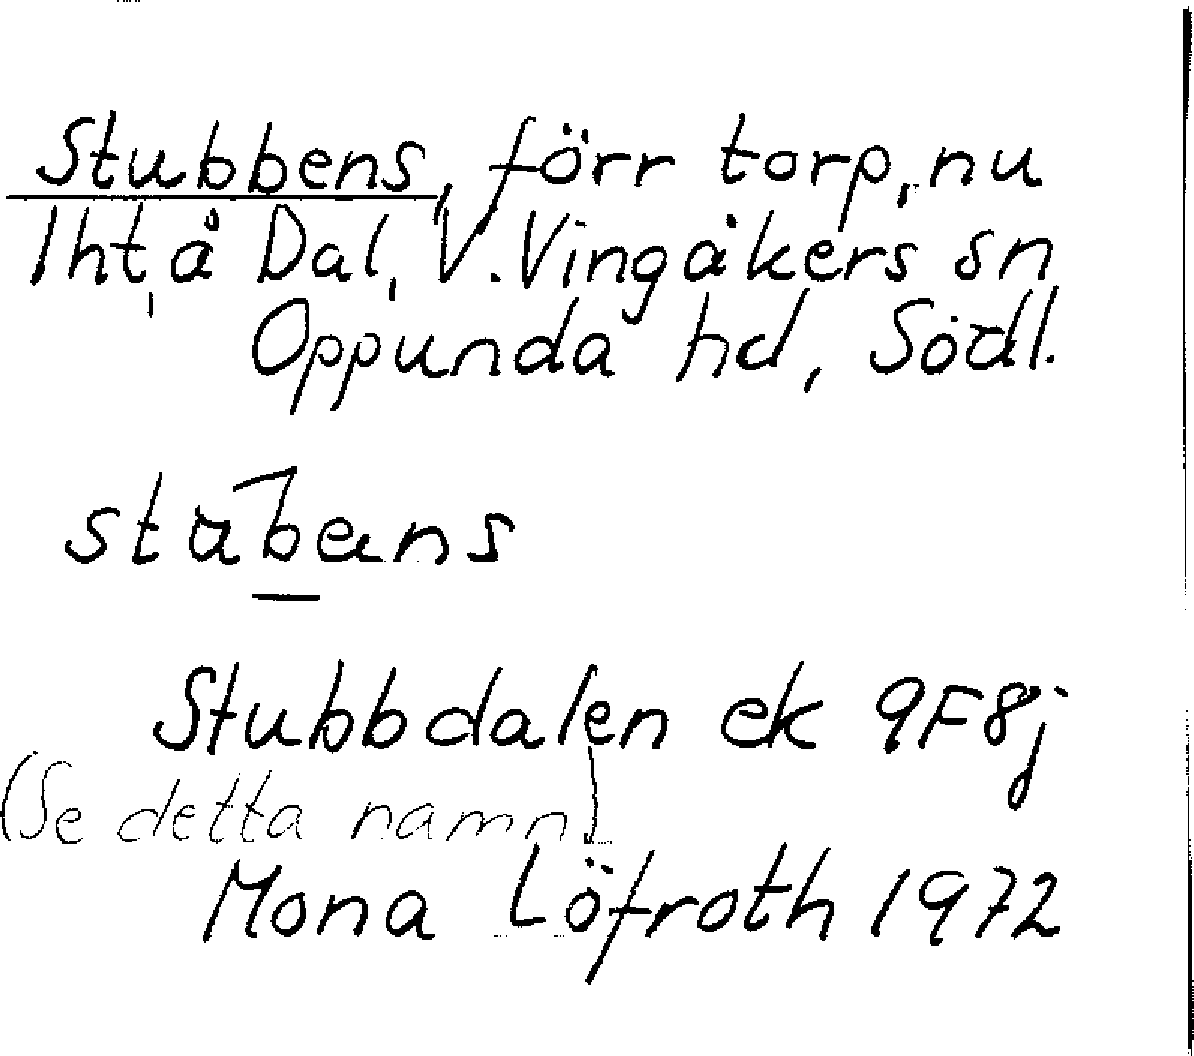 Stubbens, förr torp, nu
lht, å Dal, V. Vingåkers sn
Oppunda hd, Södl.
stabens
Stubbdalen ek 9F8j
(Se detta namn)
Mona Löfroth 1972